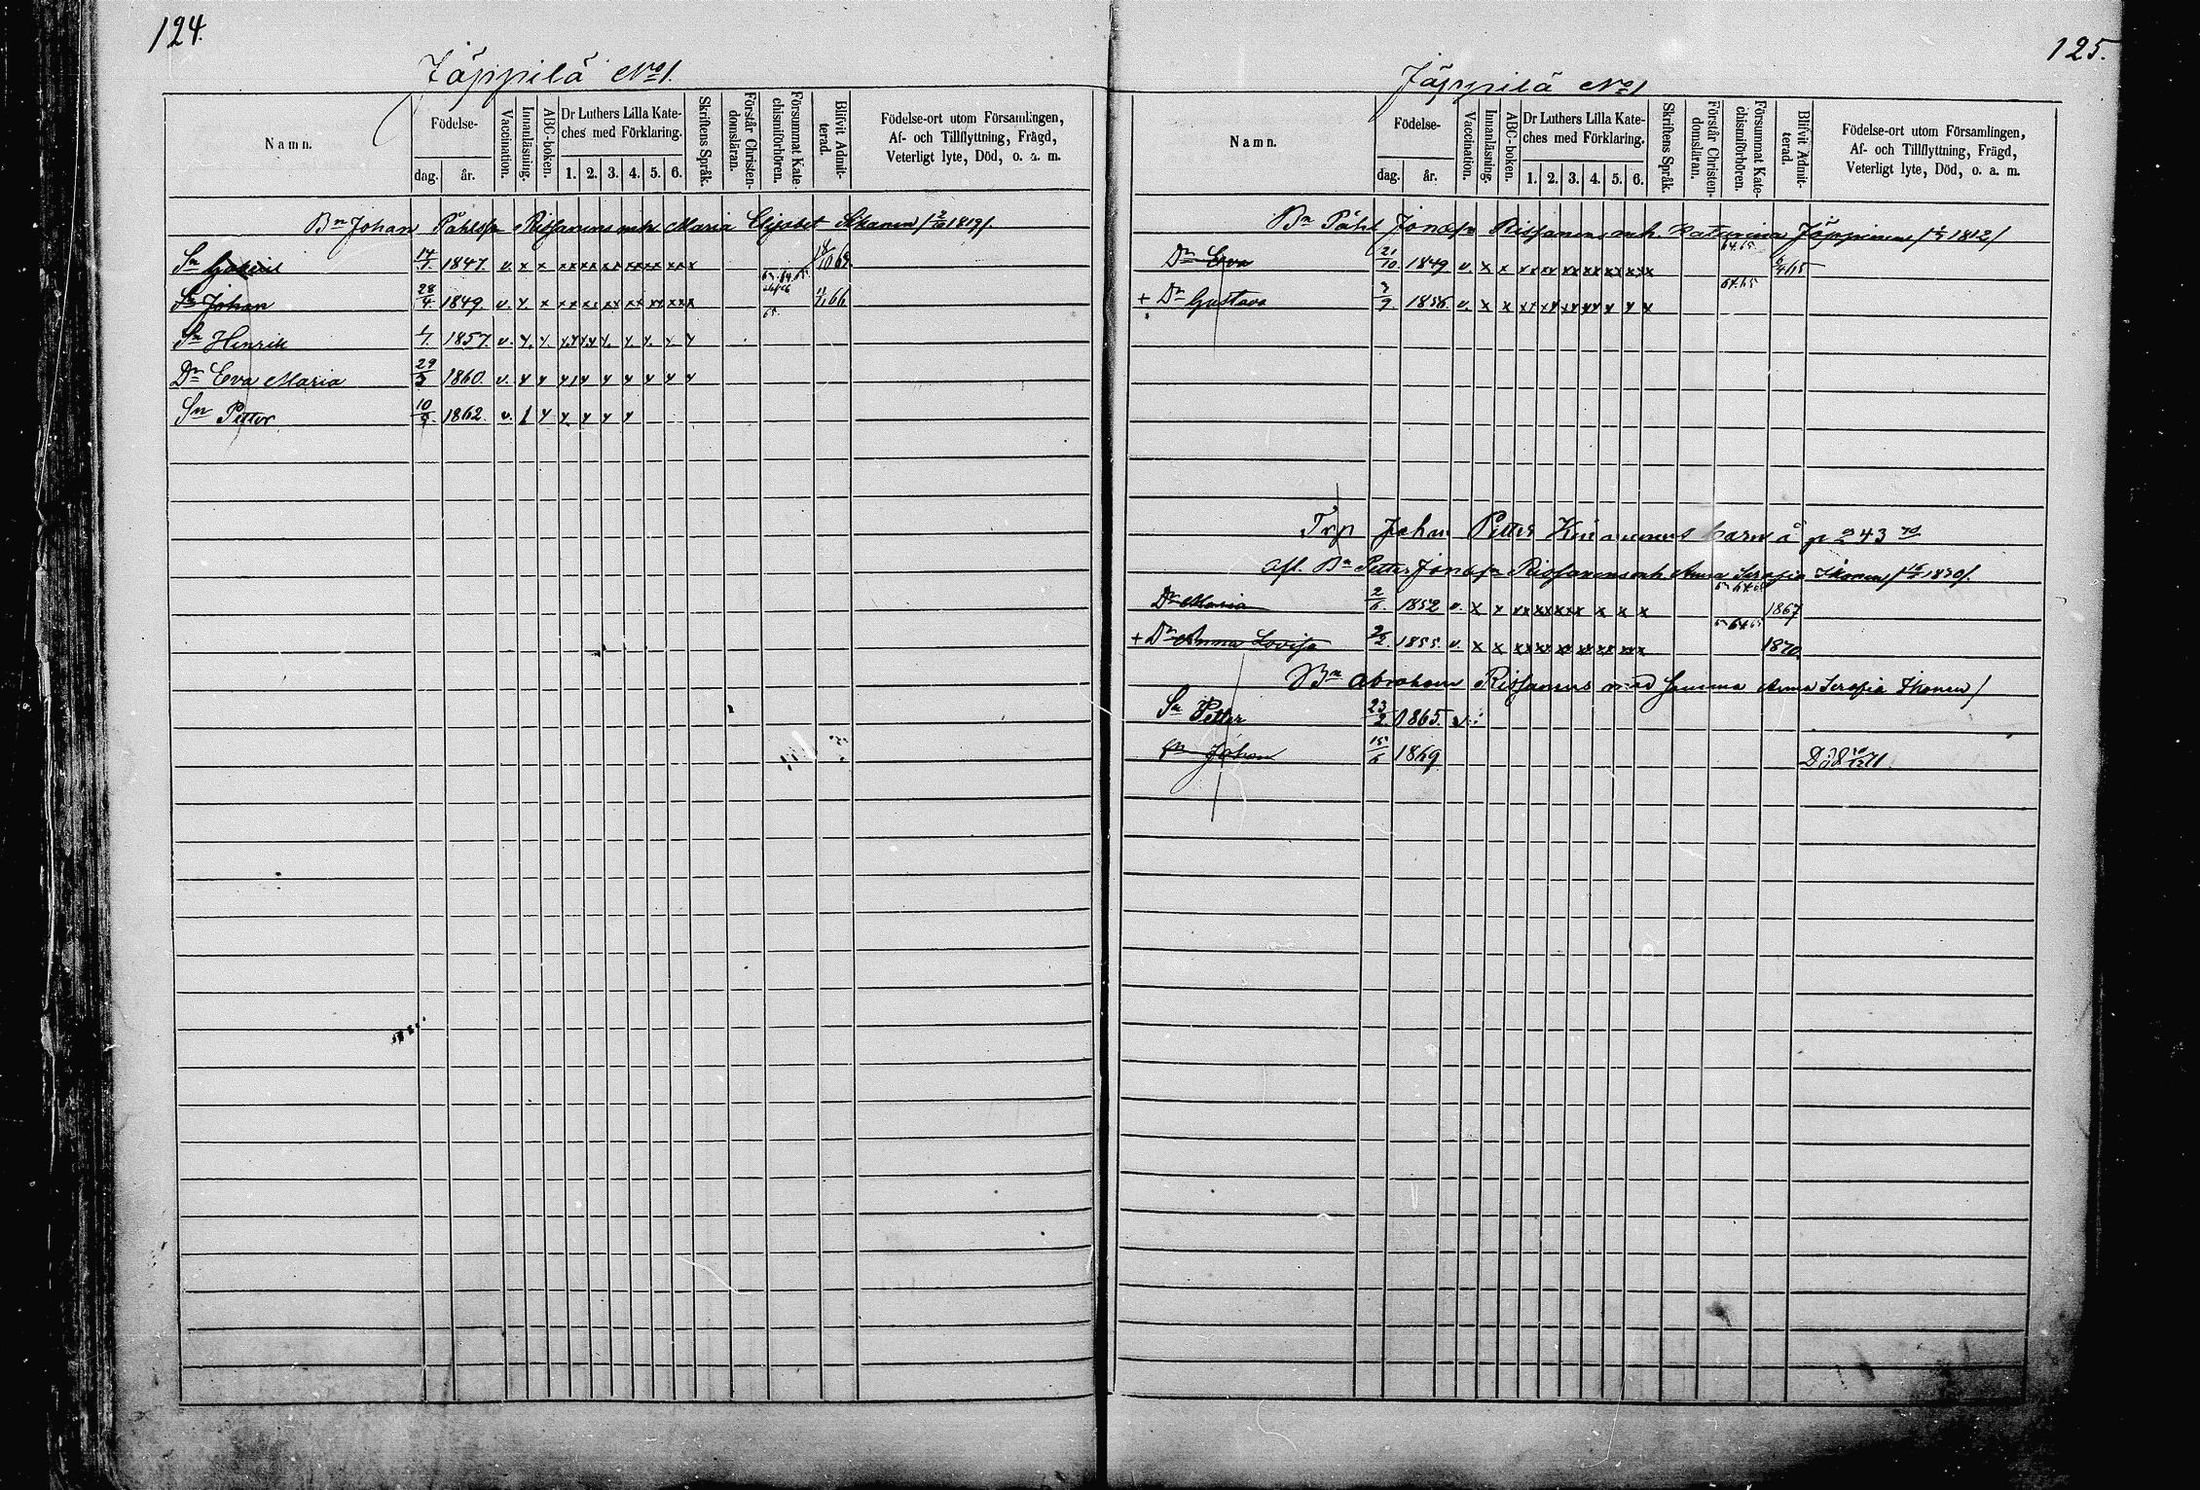 124.
Jäppilä No 1.
Namn.
Födelse-
dag.
år.
Vaccination.
Innanläsning.
ABC-boken.
Dr Luthers Lilla Kate-
ches med Förklaring.
1. 2. 3. 4. 5. 6.
Skriftens Språk.
Förstår Christen-
domsläran.
Försummat Kate-
chismiförhören.
Blifvit Admit-
terad.
Födelse-ort utom Församlingen,
Af- och Tillflyttning, Frägd,
Veterligt lyte, Död, o. s. m.
Bn Johan Påhlsson Rissanens enka Maria Elisabet 1819/.
Sn Gabriel 17/7. 1847. v. x x xx xx xx xx xx xx x
Sn Johan 28/4. 1849. v. x x xx xx xx xx xx xx x 66
Sn Hinrik 1/7. 1857. v.
Dr Eva Maria 29/3 1860. v.
Sn Petter 10/9. 1862. v.
125.
Jäppilä No 1
Namn.
Födelse-
dag.
år.
Vaccination.
Innanläsning.
ABC-boken.
Dr Luthers Lilla Kate-
ches med Förklaring.
1. 2. 3. 4. 5. 6.
Skriftens Språk.
Förstår Christen-
domsläran.
Försummat Kate-
chismiförhören.
Blifvit Admit-
terad.
Födelse-ort utom Församlingen,
Af- och Tillflyttning, Frägd,
Veterligt lyte, Död, o. s. m.
Bn Påhl Jonasson Rissanens enk. Katarina Jäppinen 1812/
64.65
Dr Eva 21/10. 1849 v. x x xx xx xx xx xx xx x 65
64.65
+ Dr Gustava 3/9. 1856 v. x x xx xx xx xx x x x
Trp Johan Petter Kinnunens barn å p 243
Afl. Bn Petter Jonasson Rissanens enk. Anna Serafia Ikonen 1830/.
Dr Maria 2/6. 1852 v. x x xx xx xx x x x x 1867
64 65
+ Dr Anna Lovisa 2/2. 1855. v. x x xx xx xx xx xx xx x 1870
Bn Abraham Rissanens med samma Anna Serafia Ikonen/
Sn Petter 23/2. 1865. v.
Sn Johan 15/6 1869 Död 71.